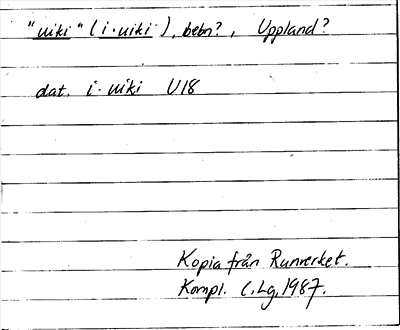 "uiki" (i·uiki), bebn?, Uppland?
dat. i·uiki U18
Kopia från Runverket.
Kompl. C.Lg, 1987.